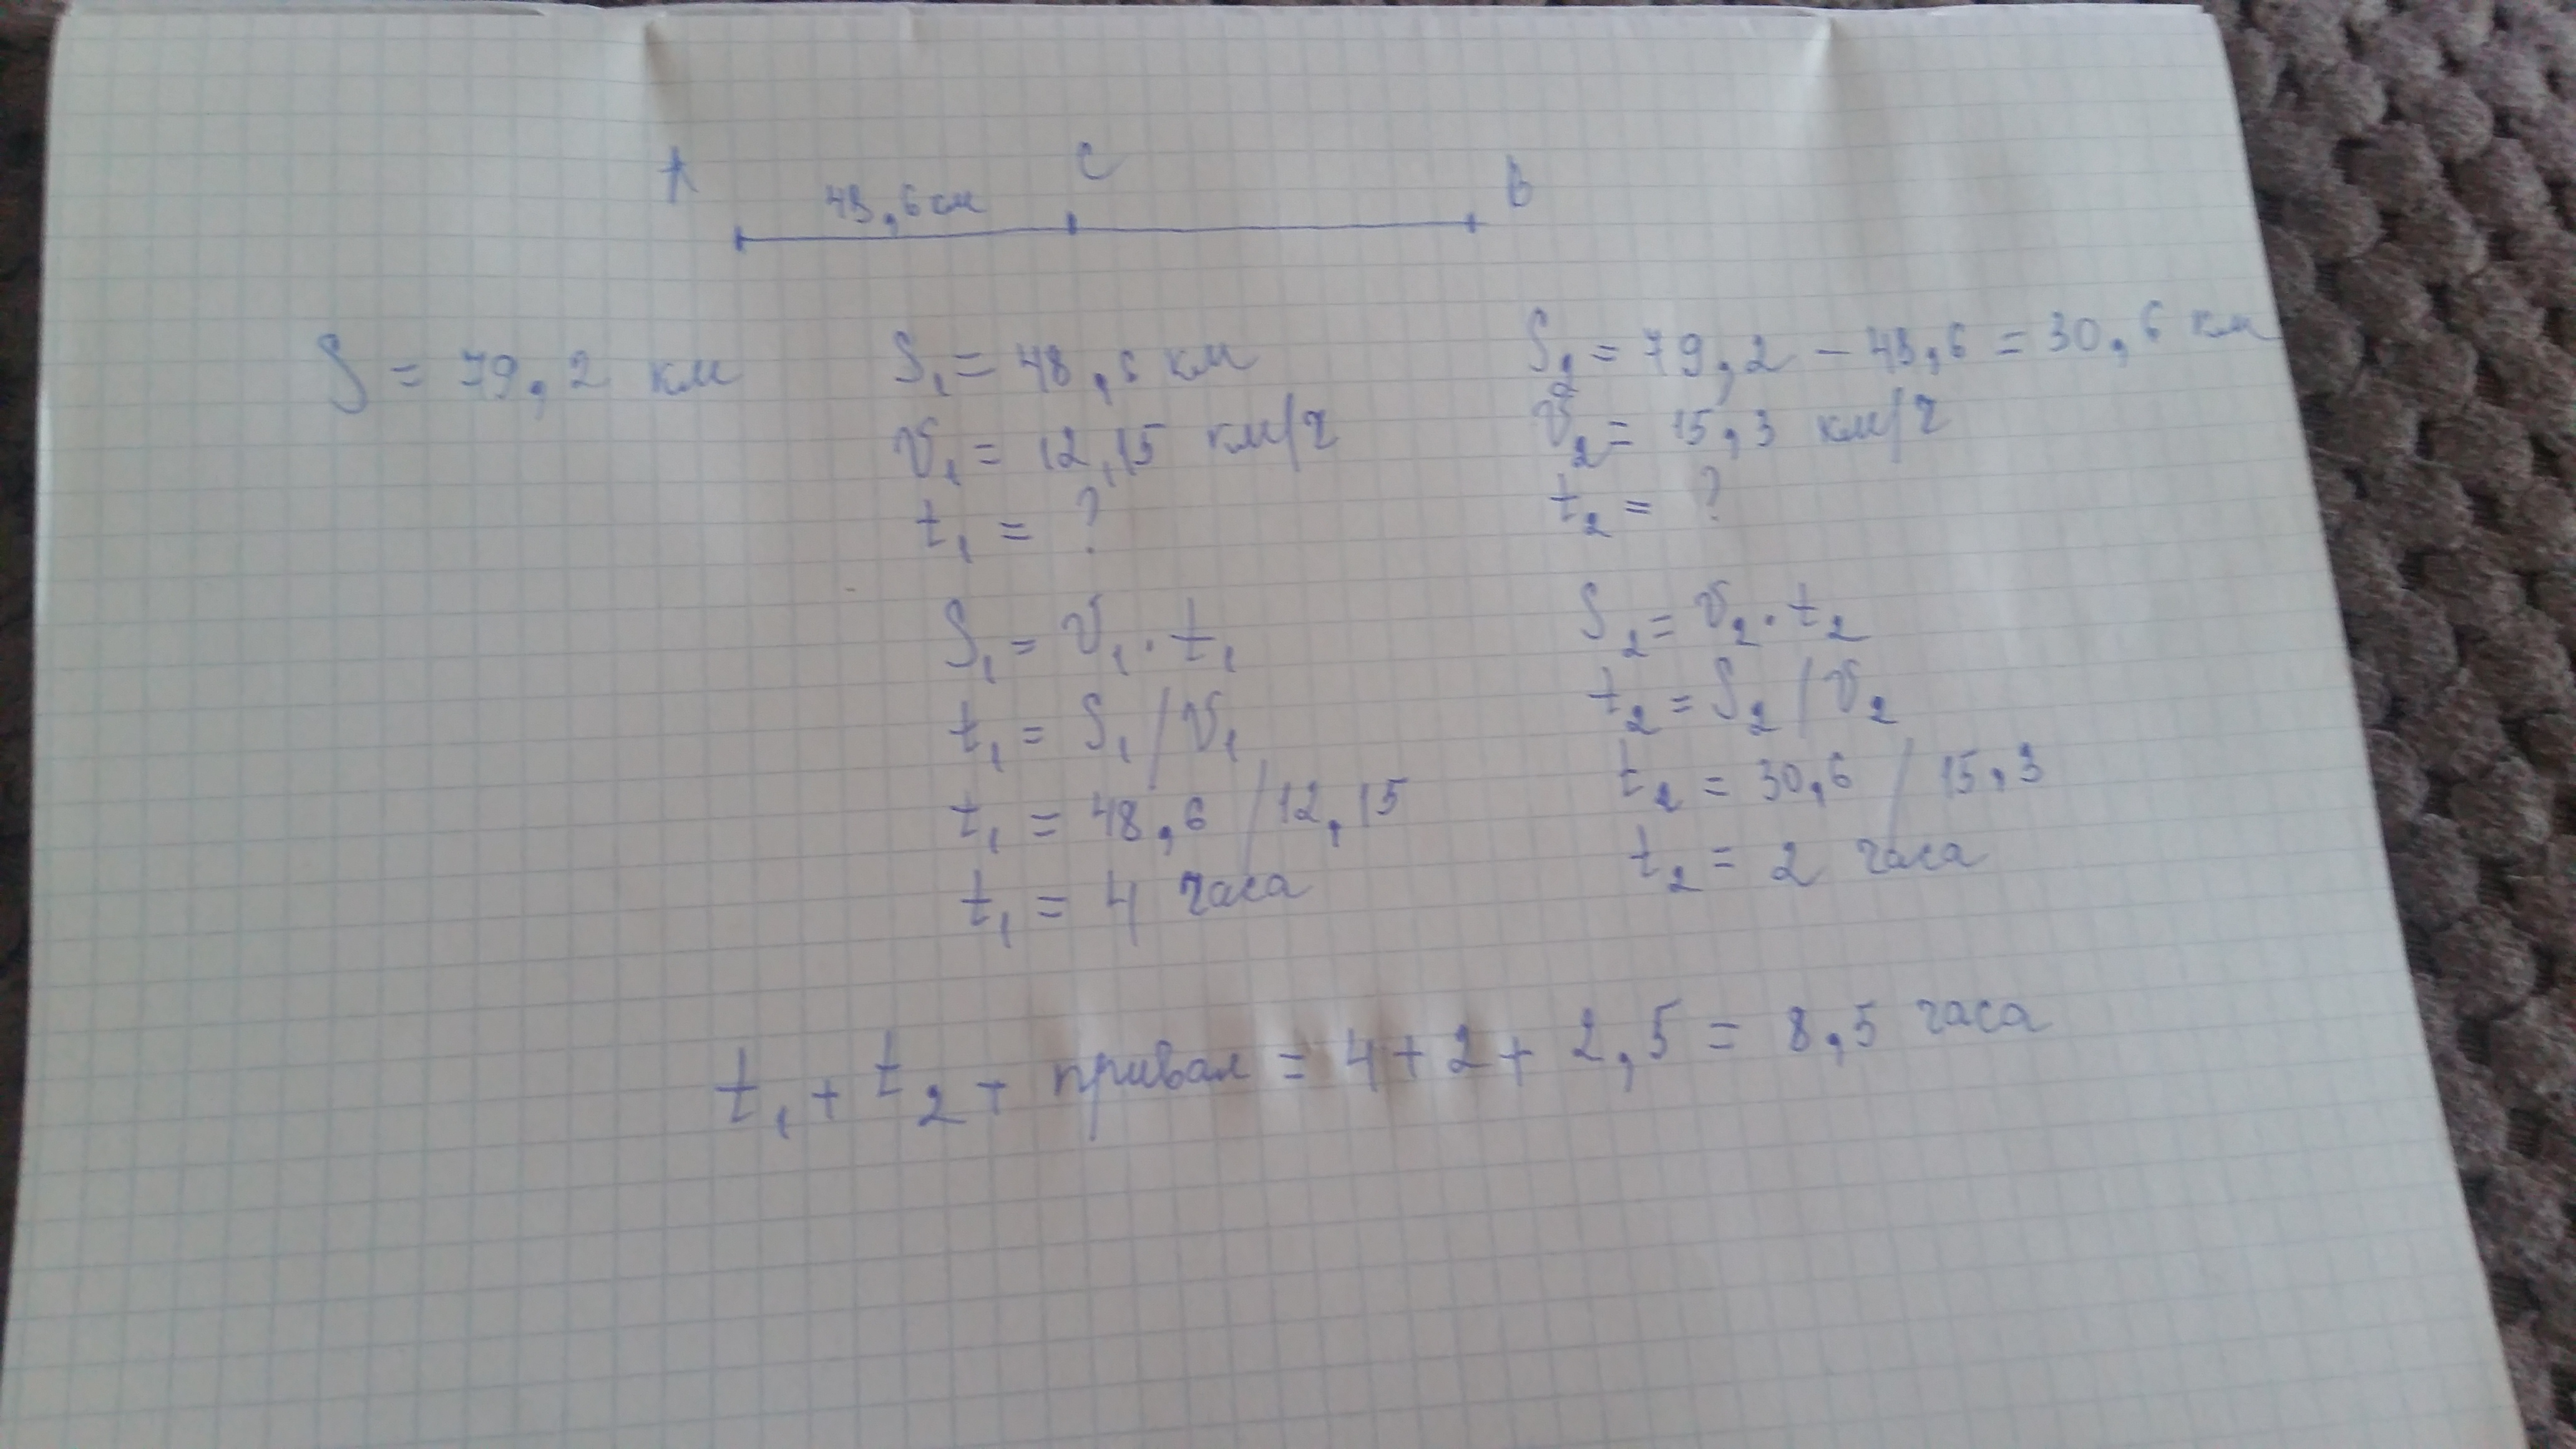 A C B
48,6 км
S = 79,2 км
S₁ = 48,6 км
V₁ = 12,15 км/ч
t₁ = ?
S₁ = V₁ · t₁
t₁ = S₁ / V₁
t₁ = 48,6 / 12,15
t₁ = 4 часа
S₂ = 79,2 - 48,6 = 30,6 км
V₂ = 15,3 км/ч
t₂ = ?
S₂ = V₂ · t₂
t₂ = S₂ / V₂
t₂ = 30,6 / 15,3
t₂ = 2 часа
t₁ + t₂ + привал = 4 + 2 + 2,5 = 8,5 часа